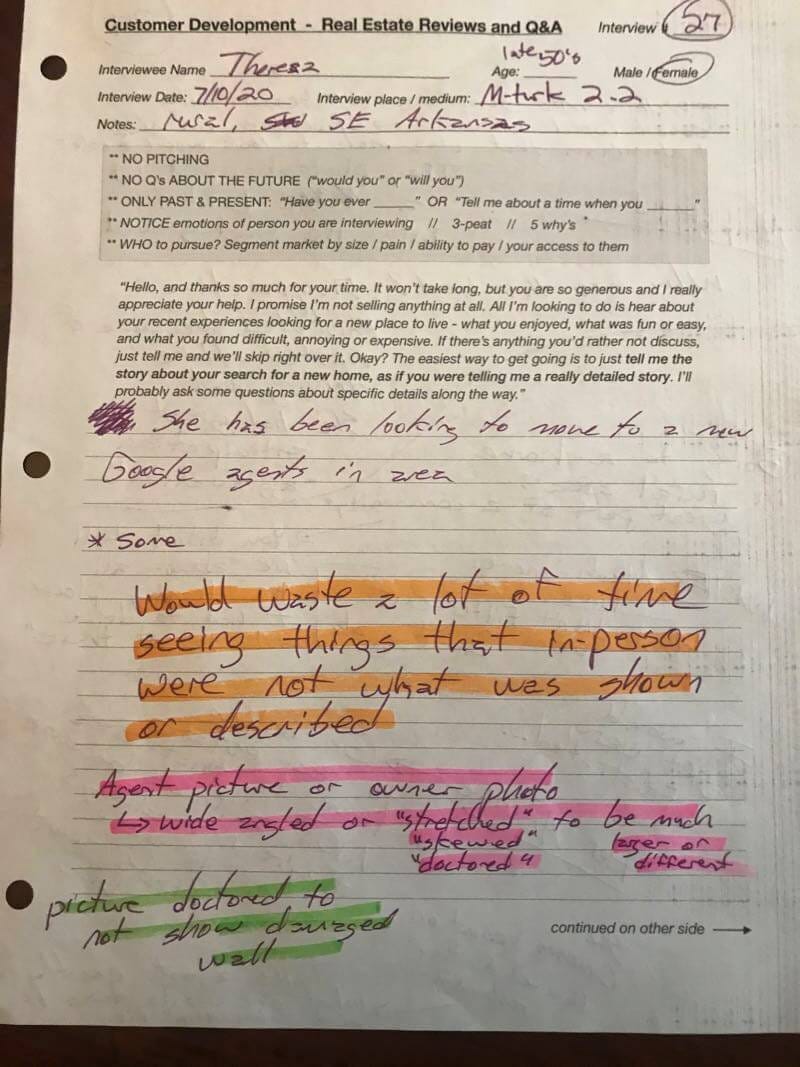 Customer Development - Real Estate Reviews and Q&A Interview # 27
Interviewee Name Theresa Age: late 50's Male / Female
Interview Date: 7/10/20 Interview place / medium: M-turk 2.2
Notes: rural, SE Arkansas
** NO PITCHING
** NO Q's ABOUT THE FUTURE ("would you" or "will you")
** ONLY PAST & PRESENT: "Have you ever ______" OR "Tell me about a time when you ______"
** NOTICE emotions of person you are interviewing // 3-peat // 5 why's
** WHO to pursue? Segment market by size / pain / ability to pay / your access to them
"Hello, and thanks so much for your time. It won't take long, but you are so generous and I really
appreciate your help. I promise I'm not selling anything at all. All I'm looking to do is hear about
your recent experiences looking for a new place to live - what you enjoyed, what was fun or easy,
and what you found difficult, annoying or expensive. If there's anything you'd rather not discuss,
just tell me and we'll skip right over it. Okay? The easiest way to get going is to just tell me the
story about your search for a new home, as if you were telling me a really detailed story. I'll
probably ask some questions about specific details along the way."
She has been looking to move to a new
Google agents in area
* Some
Would waste a lot of time
seeing things that in-person
were not what was shown
or described
Agent picture or owner photo
↳ wide angled or "stretched" to be much
"skewed" larger or
"doctored" different
picture doctored to
not show damaged
wall
continued on other side →